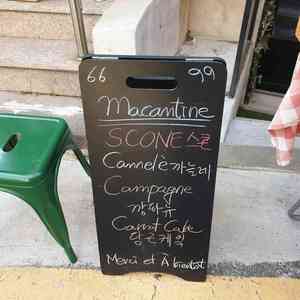 66 99
Macantine
SCONE 스콘
Cannelè 까늘레
Campagne
깡파뉴
Carrot Cake
당근케익
Merci et À bientôt